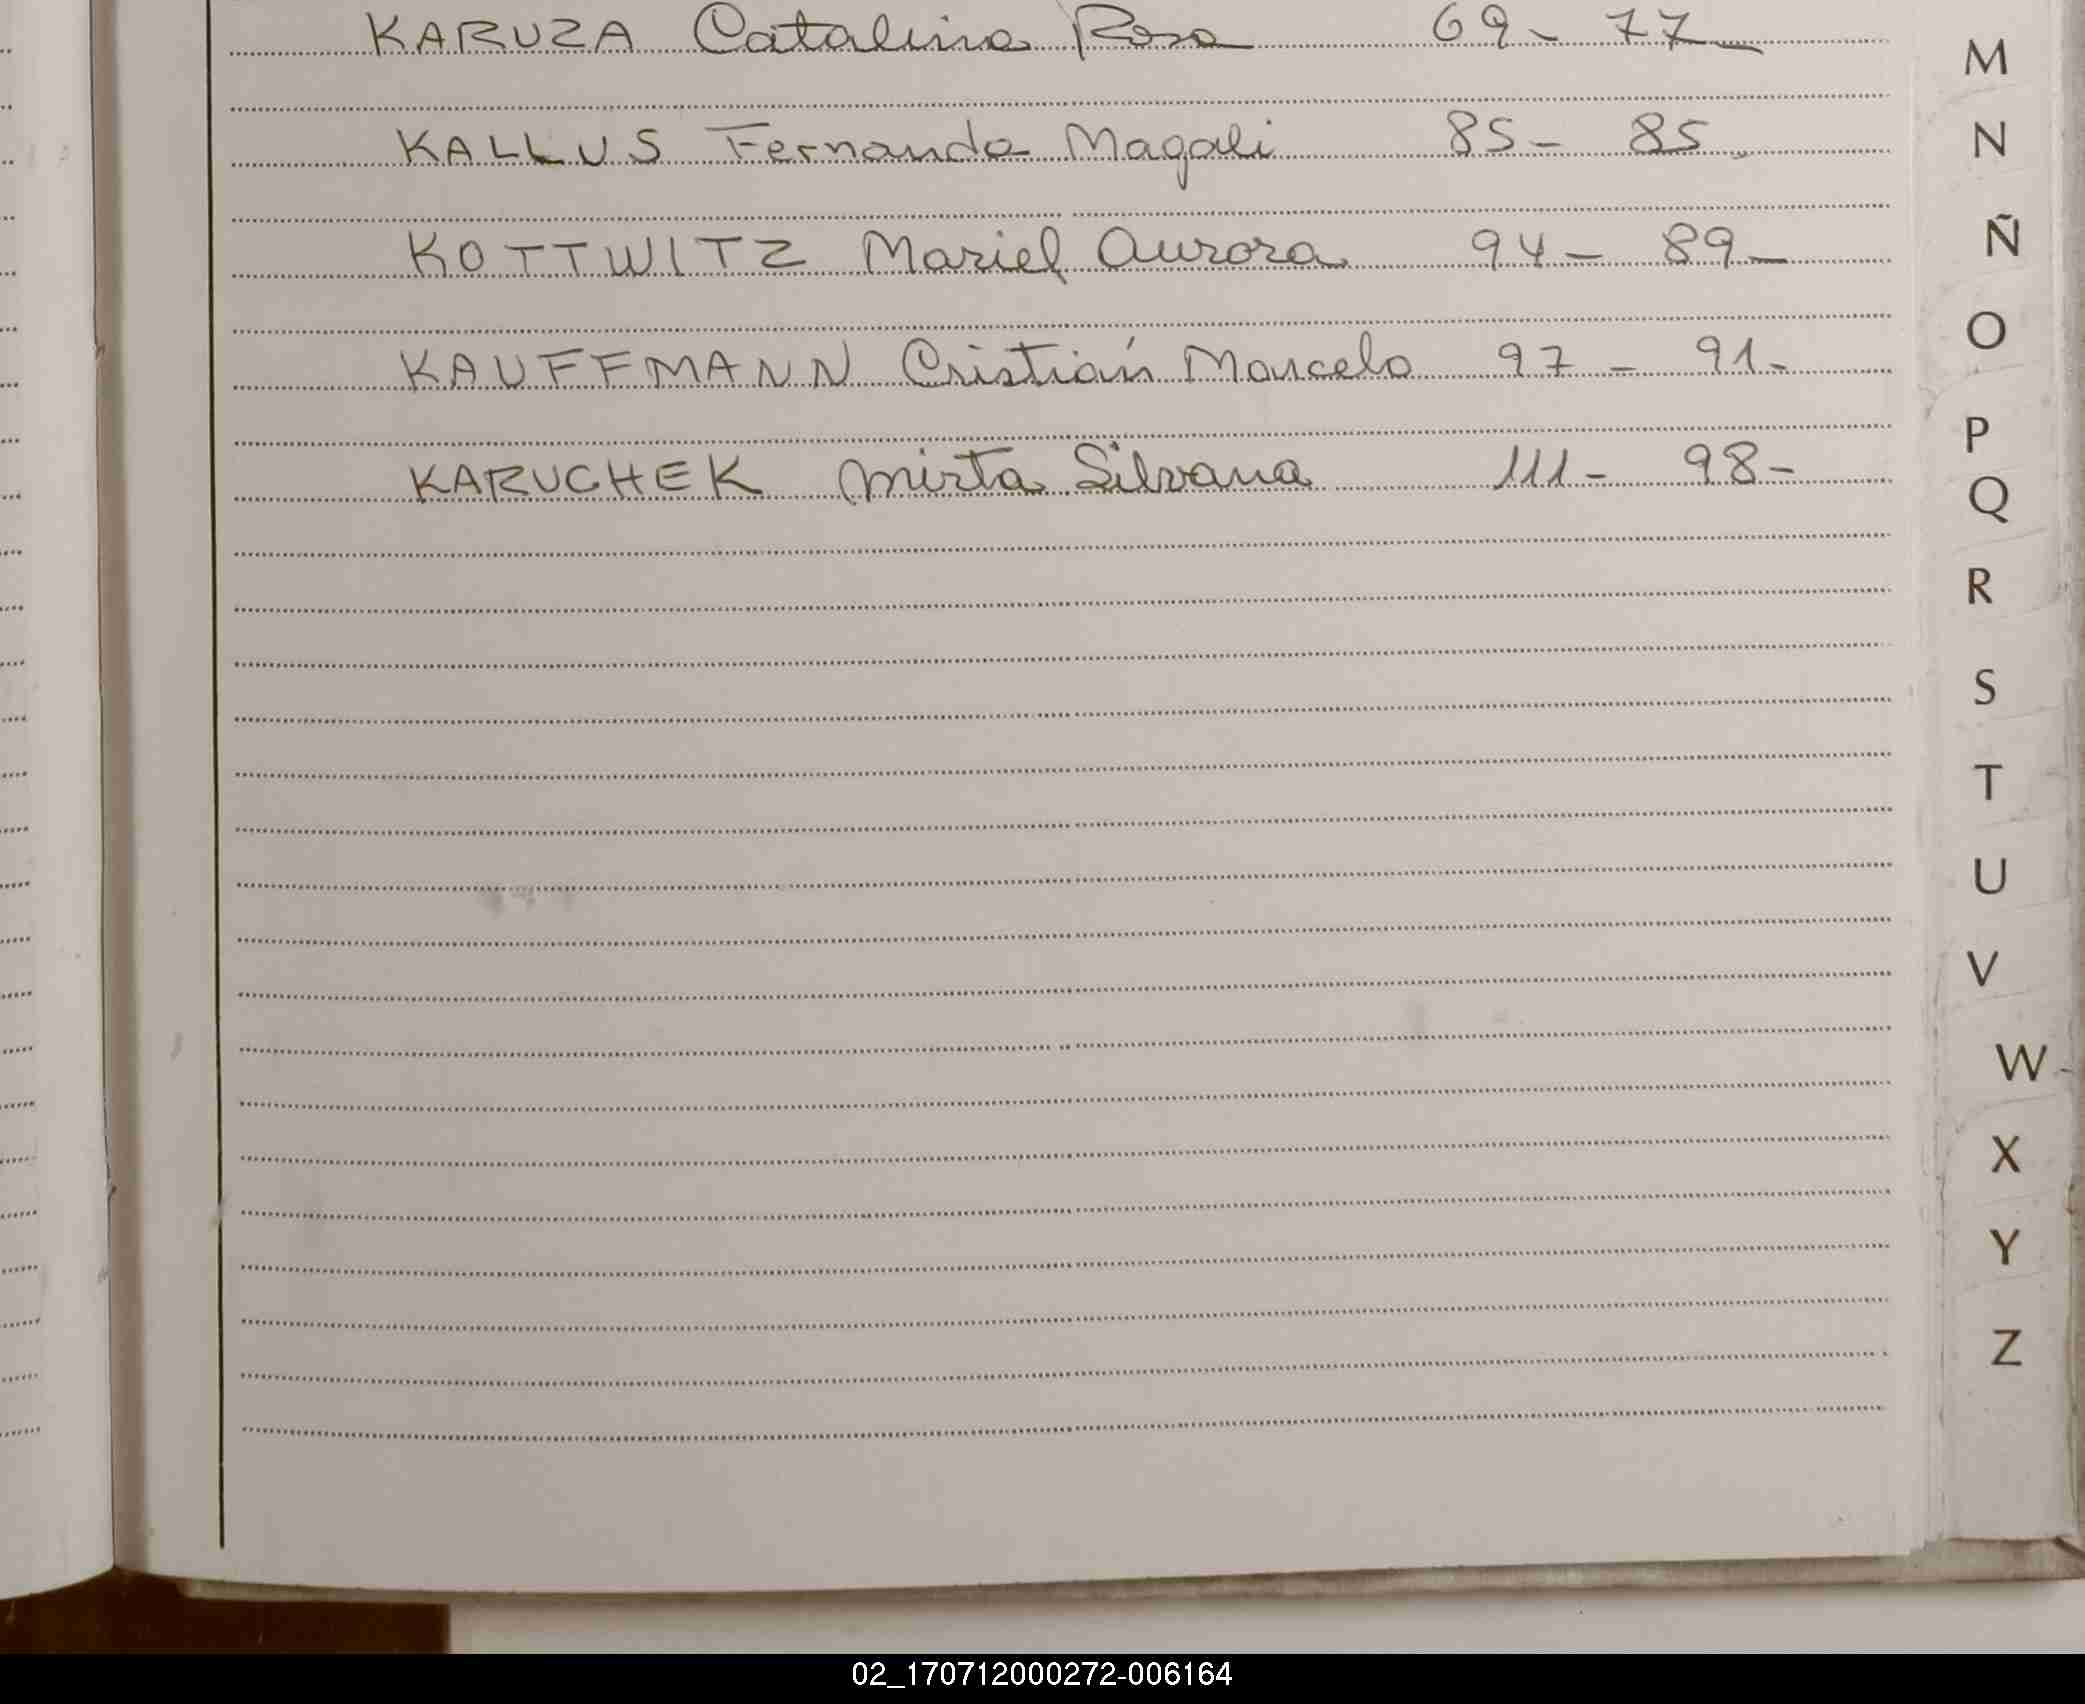 KARUZA Catalina Rosa 69- 77-
KALLUS Fernanda Magali 85- 85.
KOTTWITZ Mariel Aurora 94- 89-
KAUFFMANN Cristián Marcelo 97- 91-
KARUCHEK Mirta Silvana 111- 98-
M
N
Ñ
O
P
Q
R
S
T
U
V
W
X
Y
Z
02_170712000272-006164